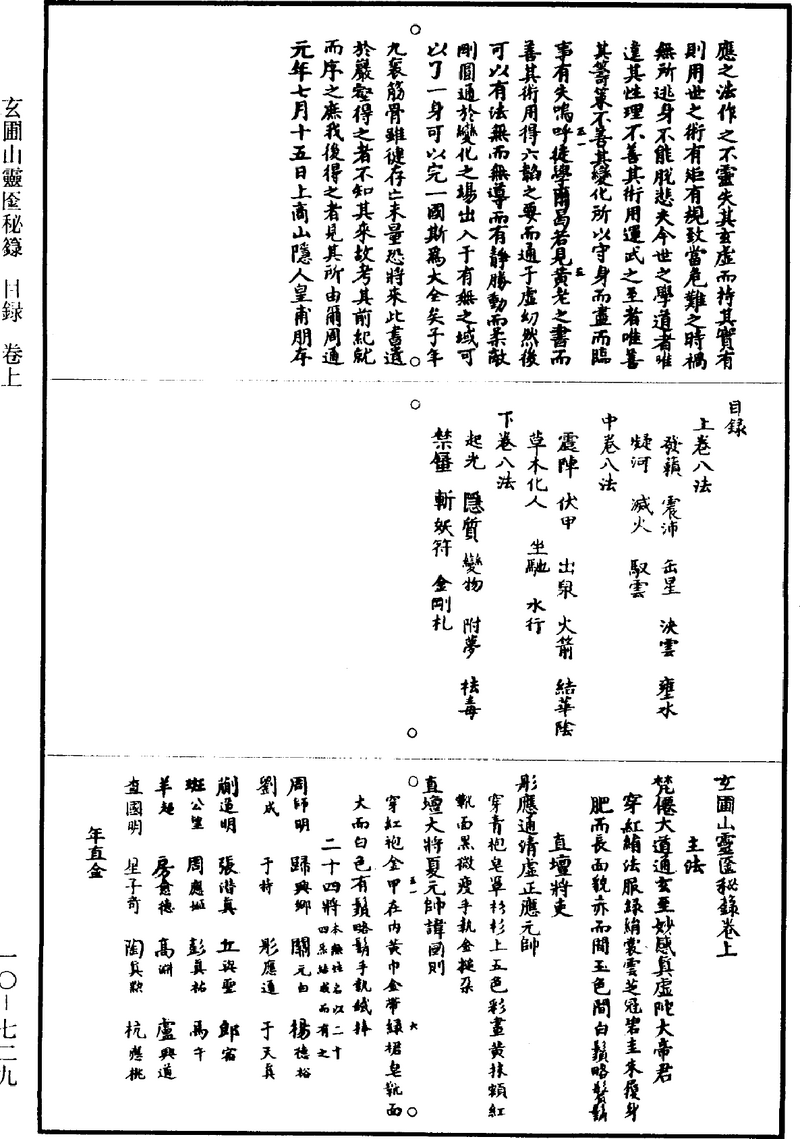 玄圃山靈匱秘籙 目録 卷上
一〇—七二九
應之法作之不靈失其玄虛而持其實有
則用世之術有矩有規致當危難之時禍
無所逃身不能脫悲夫今世之學道者唯
達其性理不善其術用運式之至者唯善
其籌策不善其變化所以守身而盡而臨
事有失嗚呼徒學爾曷若見黃老之書而
善其術用得六韜之要而通于虛幻然後
可以有法無而無導而有靜勝動而柔敵
剛圓通於變化之場出入于有無之域可
以了一身可以完一國斯爲大全矣予年
九袠筋骨雖健存亡未量恐將來此書遺
於嚴壑得之者不知其來故考其前紀就
而序之庶我後得之者見其所由爾周通
元年七月十五日上商山隱人皇甫朋存
目録
上卷八法
發籟 震沛 缶星 決雲 壅水
凝河 滅火 馭雲
中卷八法
震陣 伏甲 出泉 火箭 結華陰
草木化人 坐馳 水行
下卷八法
起光 隱質 變物 附夢 祛毒
禁鑪 斬妖符 金剛札
玄圃山靈匱秘籙卷上
主法
梵僊大道通玄至妙感真虛陁大帝君
穿紅綃法服綠綃裳雲芝冠碧圭朱履身
肥而長面貌赤而間玉色間白鬚略鬢鬍
直壇將吏
彤應通靖虛正應元帥
穿青袍皂罩衫衫上五色彩畫黃抹額紅
靴面黑微瘦手執金槌朶
直壇大將夏元帥諱國則
穿紅袍金甲在内黃巾金帶綠裙皂靴面
大而白色有鬚略鬍手執鐵棒
二十四將本無姓名以二十四炁結成而有之
周師明 歸興鄉 關元白 楊德裕
劉成 于特 彤應通 于天真
蒯道明 張潛真 丘玄聖 鄔宿
班公望 周應城 彭真祐 馬午
羊起 房意德 高渊 盧興道
查國明 星子奇 陶真歟 杭應桃
年直金